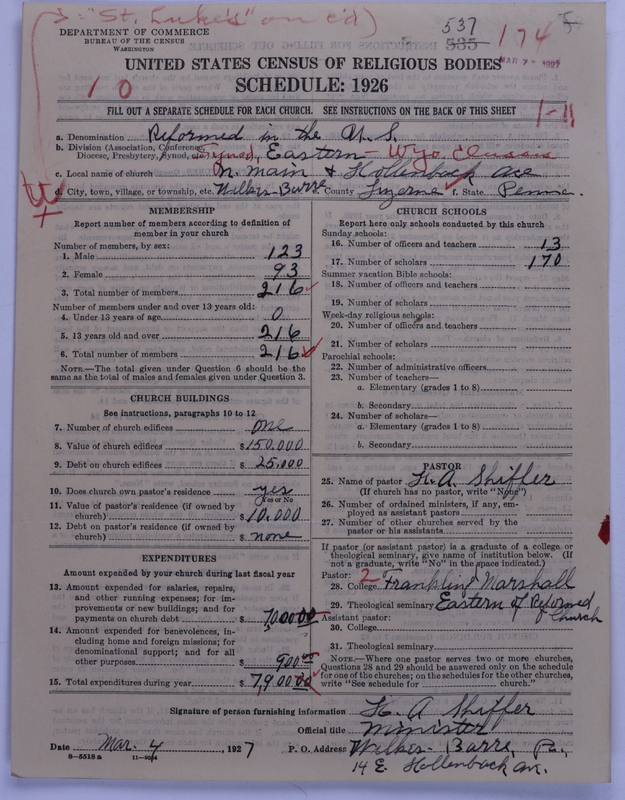 "St. Luke's" on c'd)
DEPARTMENT OF COMMERCE
BUREAU OF THE CENSUS
WASHINGTON
537
535
174
MAR 7 - 1927
UNITED STATES CENSUS OF RELIGIOUS BODIES
SCHEDULE: 1926
10
1-11
FILL OUT A SEPARATE SCHEDULE FOR EACH CHURCH. SEE INSTRUCTIONS ON THE BACK OF THIS SHEET
a. Denomination Reformed in the U.S.
b. Division (Association, Conference, Diocese, Presbytery, Synod, Synod, Eastern - Wyo. Classis
c. Local name of church N. Main & Hollenback Ave
d. City, town, village, or township, etc. Wilkes-Barre County Luzerne f. State Penna.
MEMBERSHIP
Report number of members according to definition of
member in your church
Number of members, by sex:
1. Male 123
2. Female 93
3. Total number of members 216
Number of members under and over 13 years old:
4. Under 13 years of age 0
5. 13 years old and over 216
6. Total number of members 216
NOTE.—The total given under Question 6 should be the
same as the total of males and females given under Question 3.
CHURCH BUILDINGS
See instructions, paragraphs 10 to 12
7. Number of church edifices one
8. Value of church edifices $150,000
9. Debt on church edifices $25,000
10. Does church own pastor's residence yes
(Yes or No)
11. Value of pastor's residence (if owned by
church) $10,000
12. Debt on pastor's residence (if owned by
church) $none
EXPENDITURES
Amount expended by your church during last fiscal year
13. Amount expended for salaries, repairs,
and other running expenses; for im-
provements or new buildings; and for
payments on church debt $7,000.00
14. Amount expended for benevolences, in-
cluding home and foreign missions; for
denominational support; and for all
other purposes $900.00
15. Total expenditures during year $7,900.00
CHURCH SCHOOLS
Report here only schools conducted by this church
Sunday schools:
16. Number of officers and teachers 13
17. Number of scholars 170
Summer vacation Bible schools:
18. Number of officers and teachers
19. Number of scholars
Week-day religious schools:
20. Number of officers and teachers
21. Number of scholars
Parochial schools:
22. Number of administrative officers
23. Number of teachers—
a. Elementary (grades 1 to 8)
b. Secondary
24. Number of scholars—
a. Elementary (grades 1 to 8)
b. Secondary
PASTOR
25. Name of pastor H. A. Shiffer
(If church has no pastor, write "None")
26. Number of ordained ministers, if any, em-
ployed as assistant pastors
27. Number of other churches served by the
pastor or his assistants
If pastor (or assistant pastor) is a graduate of a college or
theological seminary, give name of institution below. (If
not a graduate, write "No" in the space indicated.)
Pastor: 2
28. College Franklin & Marshall
29. Theological seminary Eastern of Reformed Church
Assistant pastor:
30. College
31. Theological seminary
NOTE.—Where one pastor serves two or more churches,
Questions 28 and 29 should be answered only on the schedule
for one of the churches; on the schedules for the other churches,
write "See schedule for church."
Signature of person furnishing information H. A Shiffer
Official title Minister
Date Mar. 4, 1927 P. O. Address Wilkes-Barre, Pa.,
14 E. Hollenback Ave.
8-5518 a